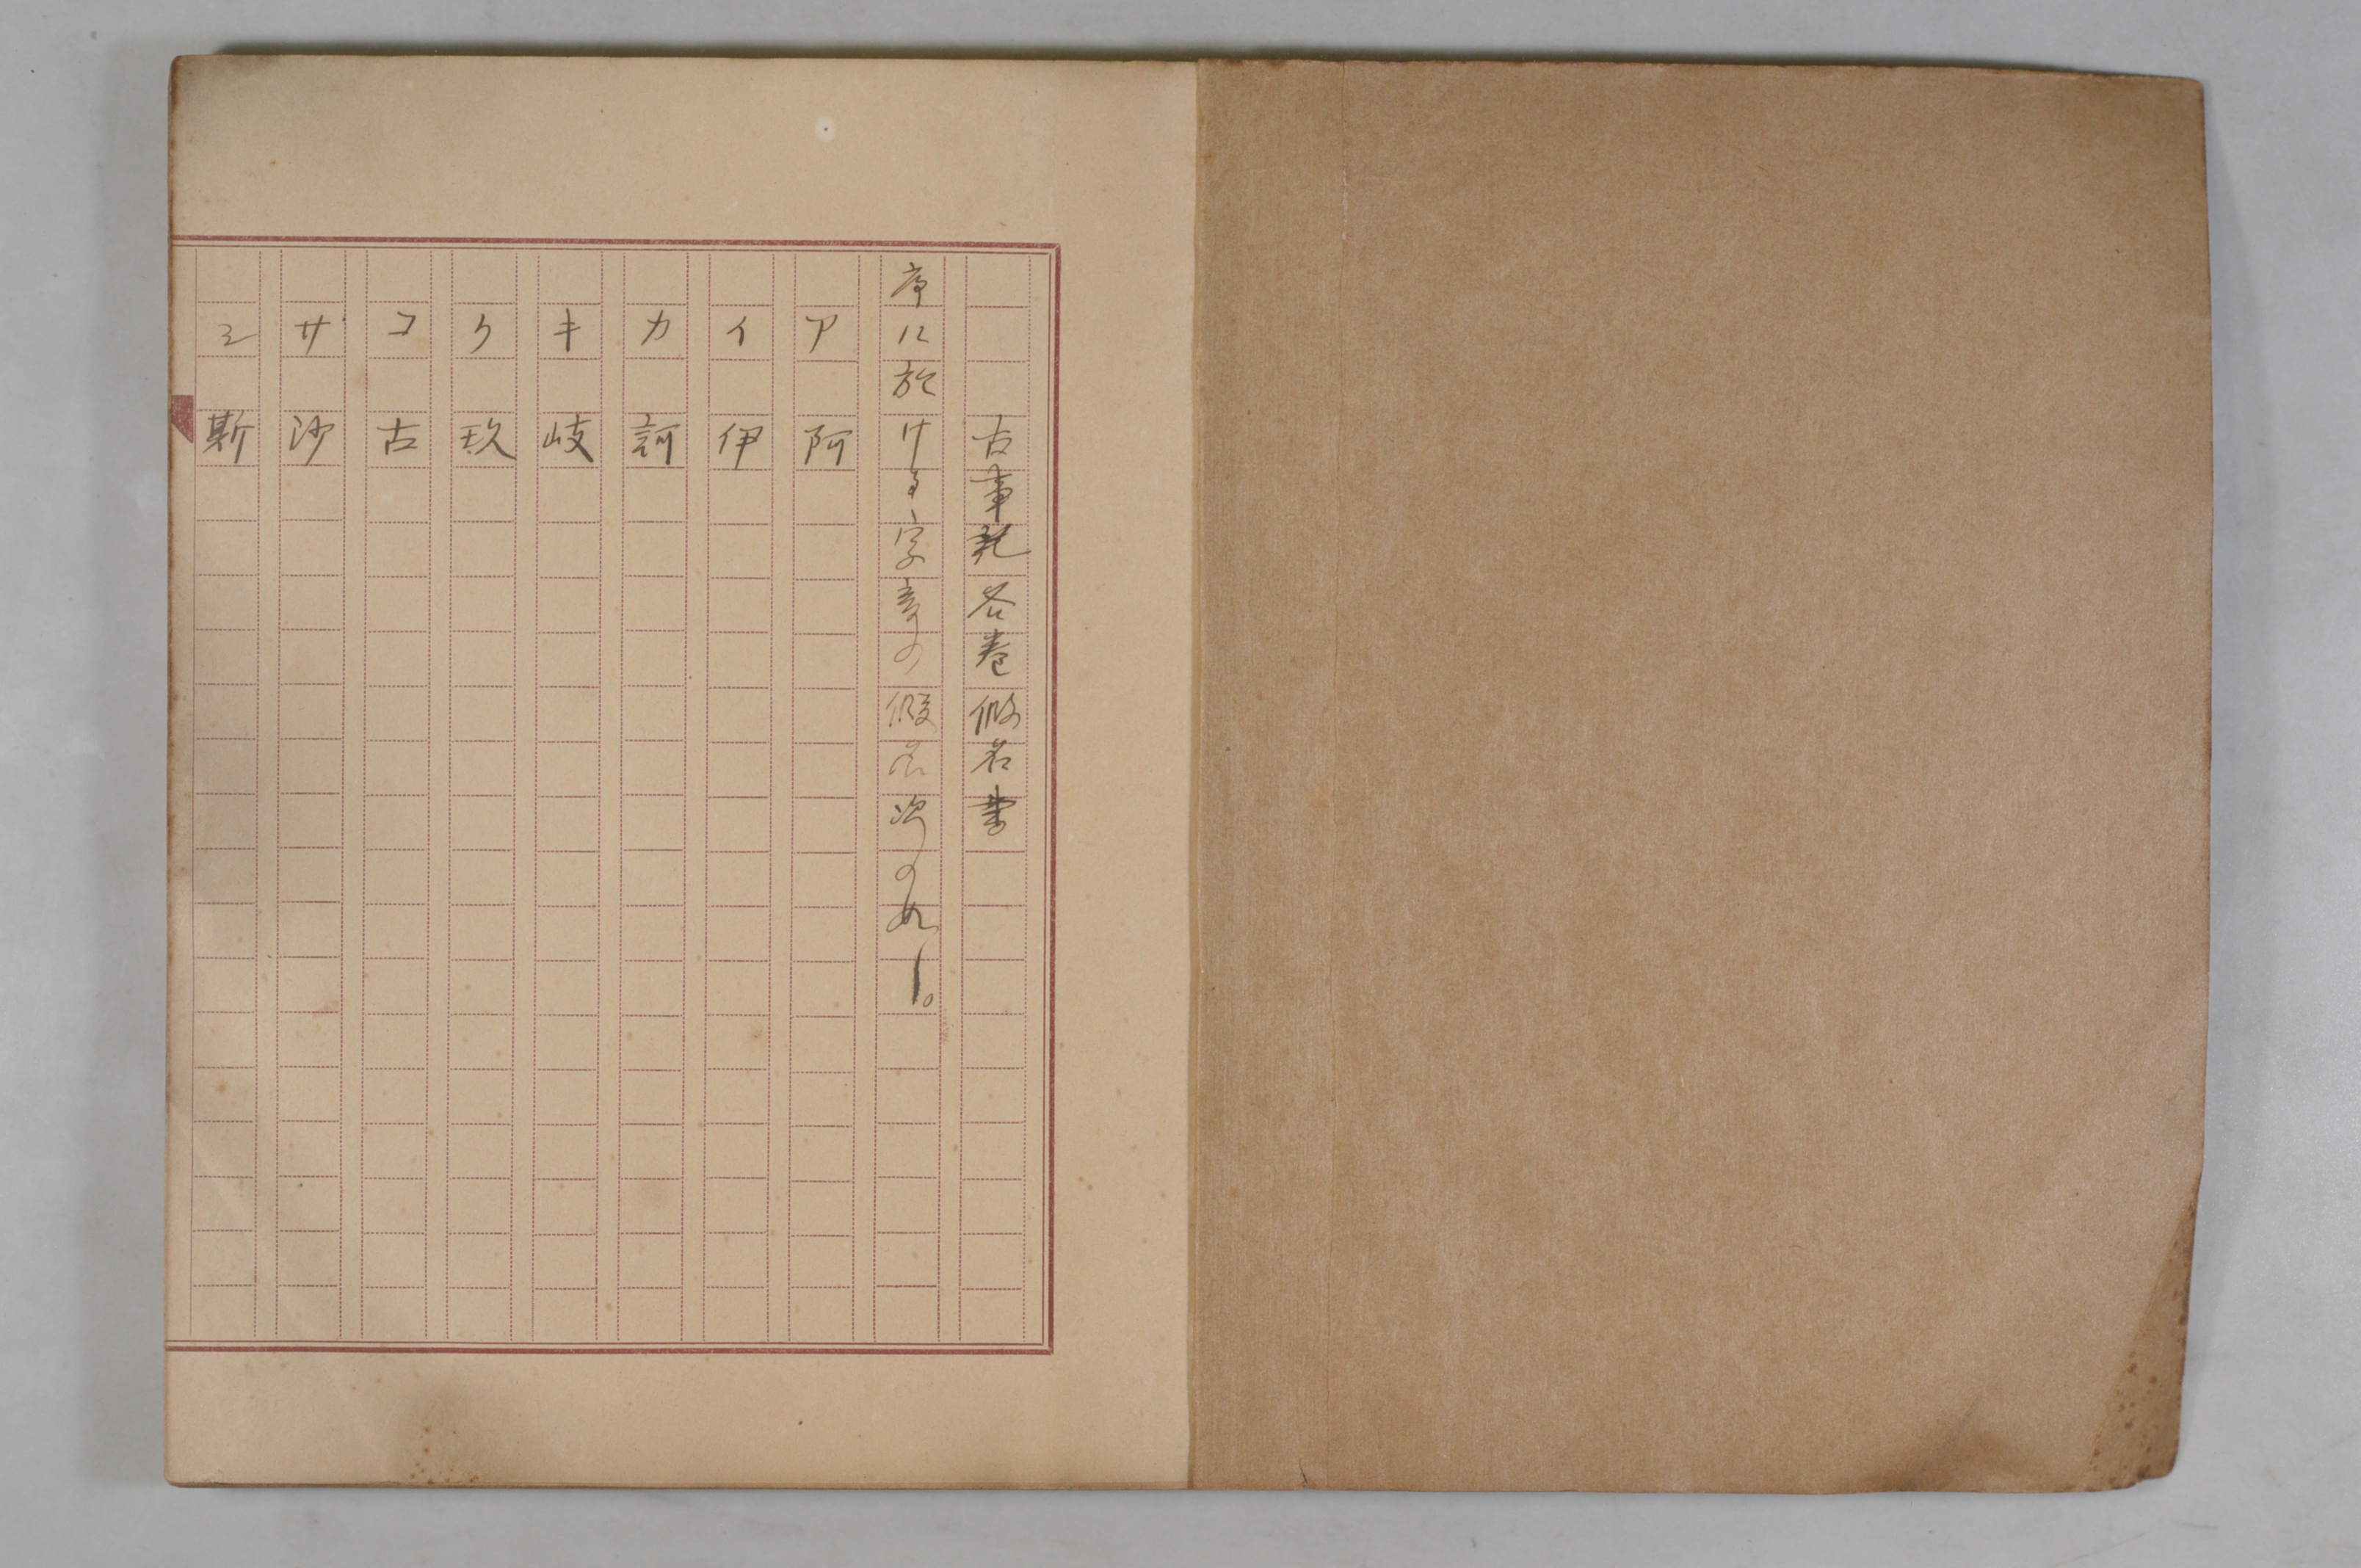 古事記各巻假名書
序に於ける字音の假名次の如し。
ア 阿
イ 伊
カ 訶
キ 岐
ク 玖
コ 古
サ 沙
シ 斯